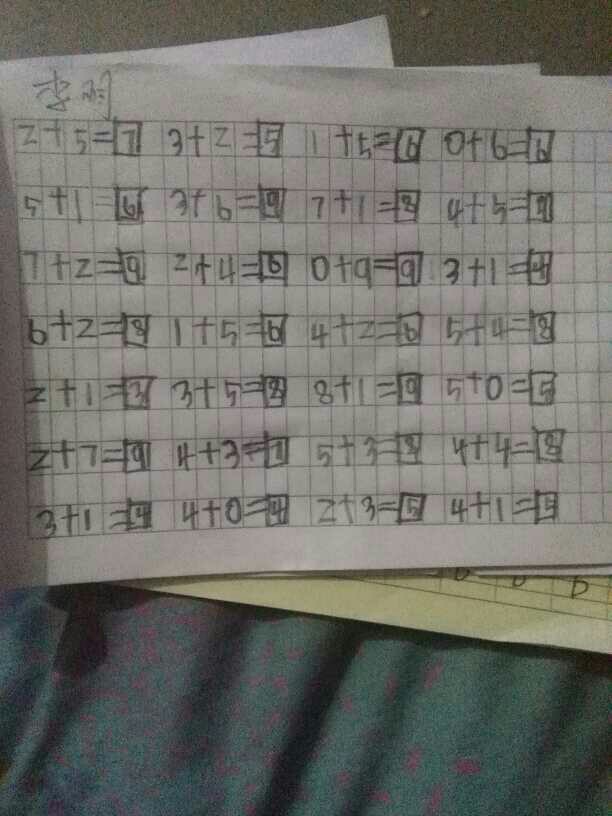 李
2+5=7 3+2=5 1+5=6 0+6=6
5+1=6 3+6=9 7+1=8 4+5=9
7+2=9 2+4=6 0+9=9 3+1=4
6+2=8 1+5=6 4+2=6 5+4=8
2+1=3 3+5=8 8+1=9 5+0=5
2+7=9 4+3=7 5+3=8 4+4=8
3+1=4 4+0=4 2+3=5 4+1=5